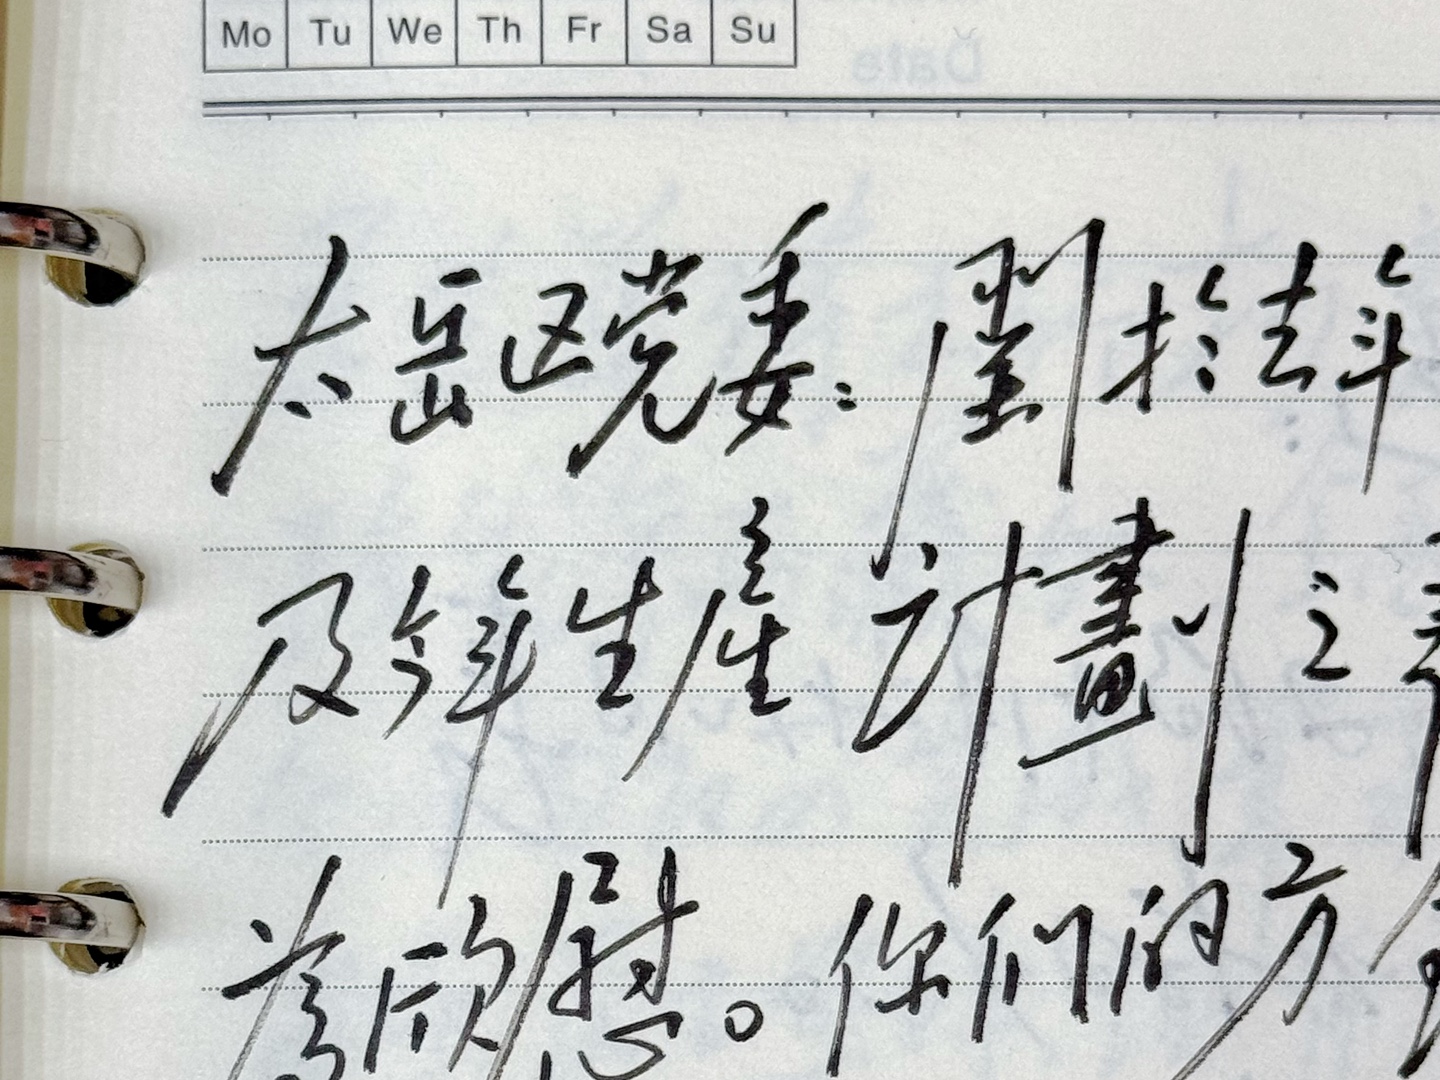 Mo Tu We Th Fr Sa Su
太岳区党委：関於去年
及今年生産計劃之
為欣慰。你们的方